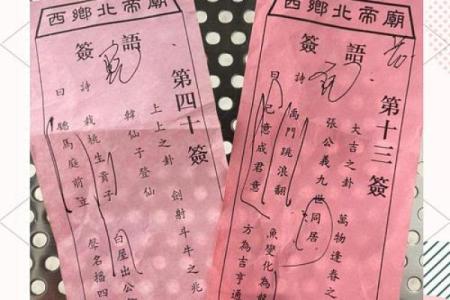 西鄉北帝廟
簽語
第四十簽
上上之卦
劍射斗牛之兆
韓仙子登仙
詩曰
栽桃生貴子
白屋出公
聰馬庭前立
聲名播四
西鄉北帝廟
簽語
第十三簽
大吉之卦
萬物逢春之
張公義九世同居
詩曰
禹門跳浪翻
魚變化為龍
己意成君意
方為吉亨通